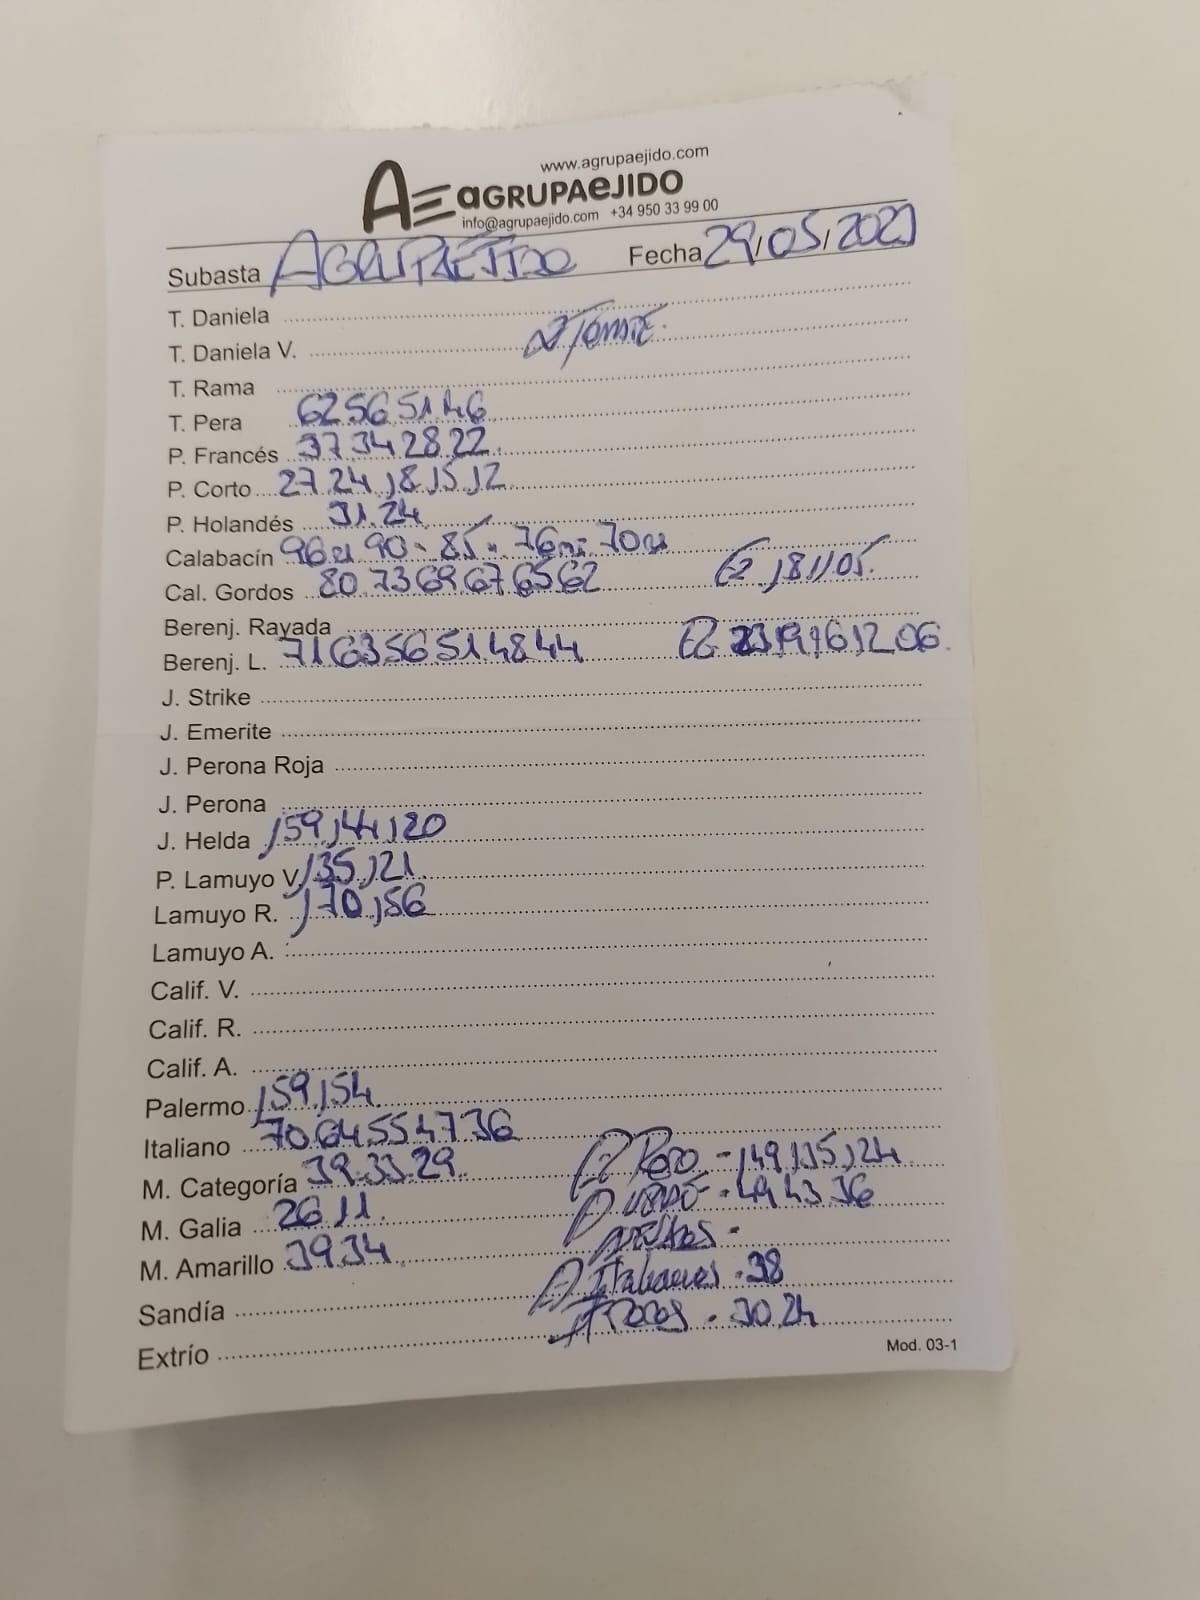 www.agrupaejido.com
AE aGRUPAeJIDO
info@agrupaejido.com +34 950 33 99 00
Subasta AGRUPAEJIDO Fecha 29/05/2021
T. Daniela
T. Daniela V.
T. Rama
T. Pera 62 56 51. 46
P. Francés 37. 34 28. 22
P. Corto 27. 24 ,18 ,15 ,12
P. Holandés 31. 24
Calabacín 96 90 - 85 - 76 70
Cal. Gordos 80. 73 69 67 65 62 ,18 ,1 ,05.
Berenj. Rayada
Berenj. L. 71 63 56 51. 48 44 23 ,19 ,16 ,12 06.
J. Strike
J. Emerite
J. Perona Roja
J. Perona
J. Helda ,159 ,144 ,120
P. Lamuyo V. ,135 ,121
Lamuyo R. ,170 ,156
Lamuyo A.
Calif. V.
Calif. R.
Calif. A.
Palermo ,159 ,154
Italiano 70 64 55 47 36
M. Categoría 39. 33. 29 Rojo - ,149 ,135 ,124
M. Galia 26 11. verde - 49 43 36
M. Amarillo 39 34
Sandía Italianos - 38
Extrío - 30 24
Mod. 03-1